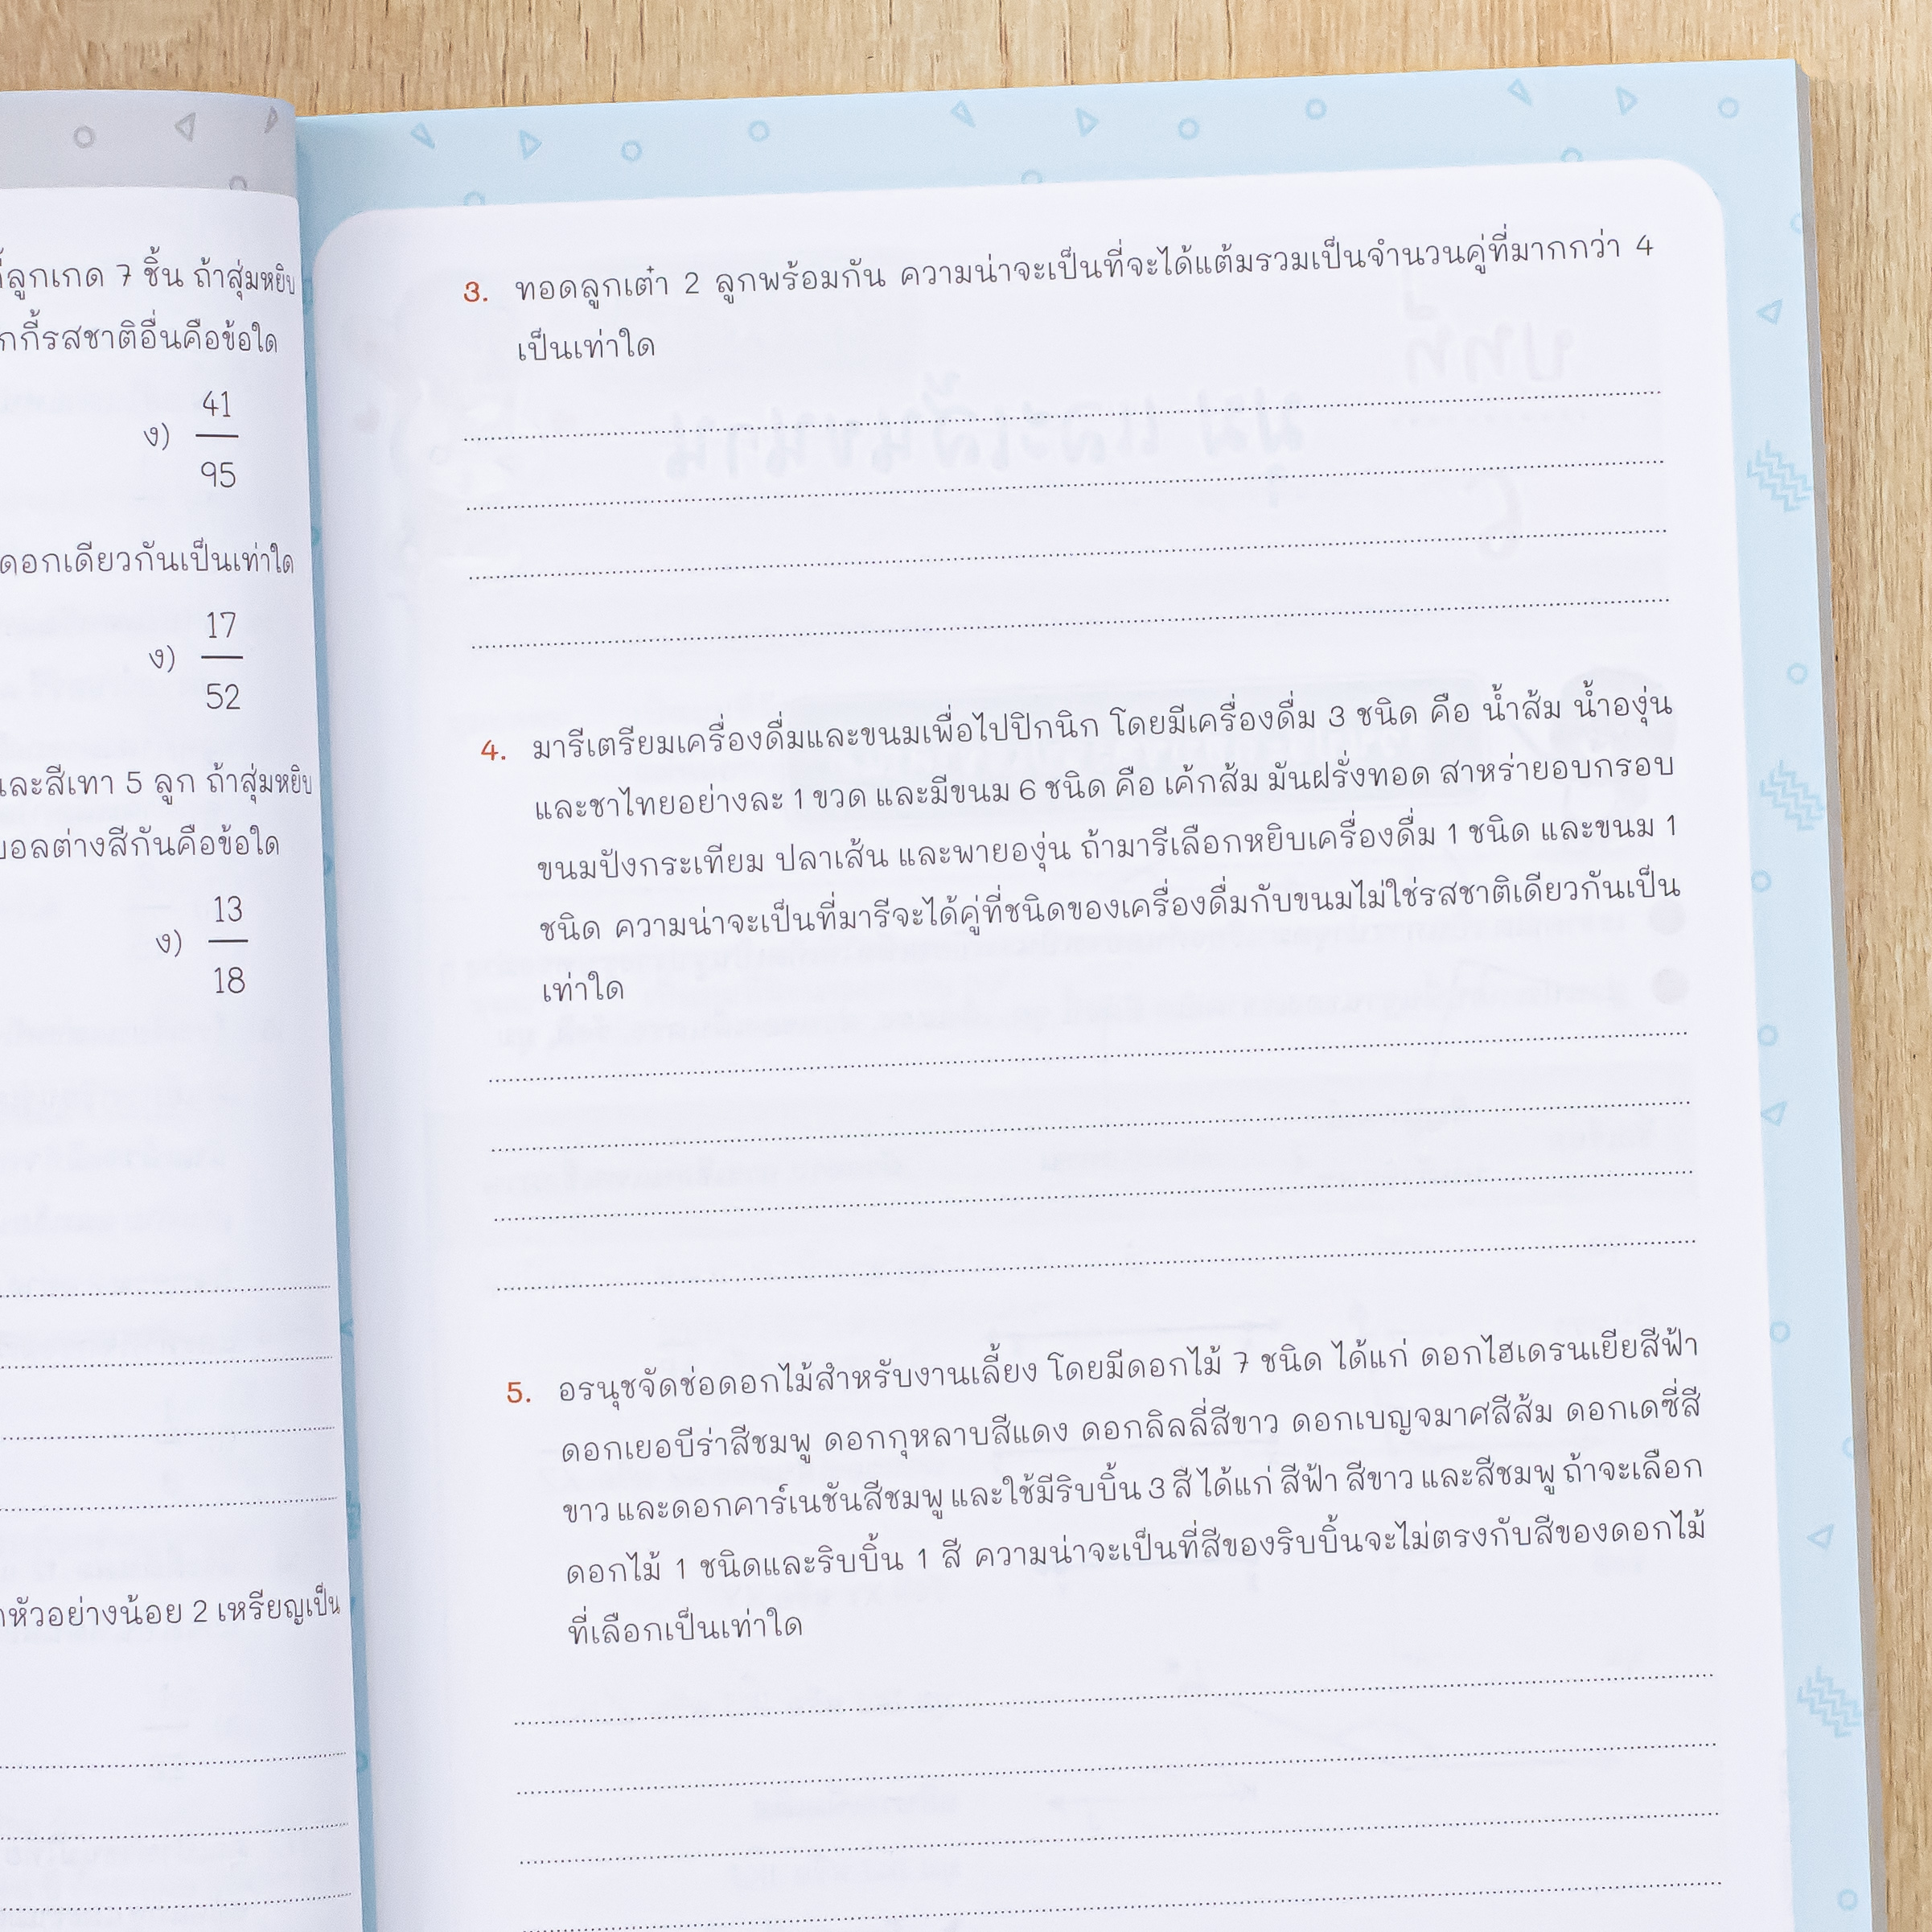 ลูกเกด 7 ชิ้น ถ้าสุ่มหยิบ
กกี้รสชาติอื่นคือข้อใด
ง) 41
95
ดอกเดียวกันเป็นเท่าใด
ง) 17
52
และสีเทา 5 ลูก ถ้าสุ่มหยิบ
บอลต่างสีกันคือข้อใด
ง) 13
18
หัวอย่างน้อย 2 เหรียญเป็น
3. ทอดลูกเต๋า 2 ลูกพร้อมกัน ความน่าจะเป็นที่จะได้แต้มรวมเป็นจำนวนคู่ที่มากกว่า 4
เป็นเท่าใด
4. มารีเตรียมเครื่องดื่มและขนมเพื่อไปปิกนิก โดยมีเครื่องดื่ม 3 ชนิด คือ น้ำส้ม น้ำองุ่น
และชาไทยอย่างละ 1 ขวด และมีขนม 6 ชนิด คือ เค้กส้ม มันฝรั่งทอด สาหร่ายอบกรอบ
ขนมปังกระเทียม ปลาเส้น และพายองุ่น ถ้ามารีเลือกหยิบเครื่องดื่ม 1 ชนิด และขนม 1
ชนิด ความน่าจะเป็นที่มารีจะได้คู่ที่ชนิดของเครื่องดื่มกับขนมไม่ใช่รสชาติเดียวกันเป็น
เท่าใด
5. อรนุชจัดช่อดอกไม้สำหรับงานเลี้ยง โดยมีดอกไม้ 7 ชนิด ได้แก่ ดอกไฮเดรนเยียสีฟ้า
ดอกเยอบีร่าสีชมพู ดอกกุหลาบสีแดง ดอกลิลลี่สีขาว ดอกเบญจมาศสีส้ม ดอกเดซี่สี
ขาว และดอกคาร์เนชันสีชมพู และใช้มีริบบิ้น 3 สี ได้แก่ สีฟ้า สีขาว และสีชมพู ถ้าจะเลือก
ดอกไม้ 1 ชนิดและริบบิ้น 1 สี ความน่าจะเป็นที่สีของริบบิ้นจะไม่ตรงกับสีของดอกไม้
ที่เลือกเป็นเท่าใด